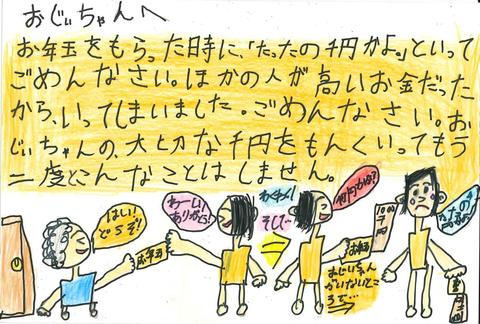 おじぃちゃんへ
お年玉をもらった時に、「たったの千円かよ。」といって
ごめんなさい。ほかの人が高いお金だった
から、いってしまいました。ごめんなさい。お
じぃちゃんの、大切な千円をもんくいってもう
二度とこんなことはしません。
はい!
どうぞ!
お年玉
わーい!
ありがとう!
そして…
何円かな?
お年玉
おじいちゃん
がいないとこ
ろで…
1000
たったの